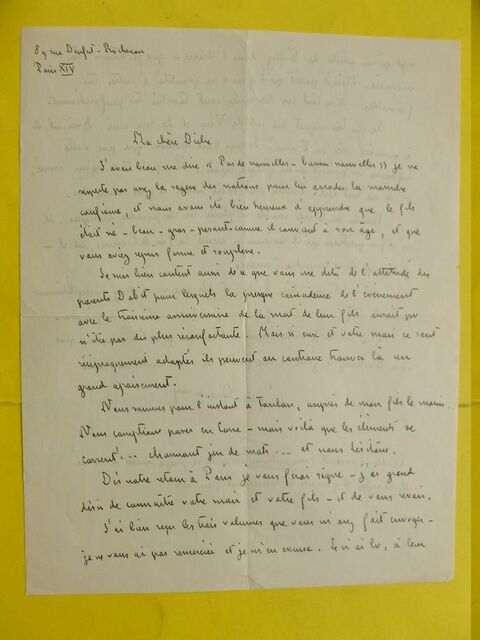 89 rue Denfert-Rochereau
Paris XIV
Ma chère
J'avais beau me dire « Pas de nouvelles - bonnes nouvelles » je ne
respecte pas assez la sagesse des nations pour lui accorder la moindre
confiance, et nous avons été bien heureux d'apprendre que le fils
était né - beau - gros - pesant - comme il convient à son âge, et que
vous aviez repris forme et souplesse.
Je suis bien content aussi de ce que vous me dites de l'attitude des
parents pour lesquels la presque coïncidence de l'événement
avec le troisième anniversaire de la mort de leur fils aurait pu
n'être pas des plus réconfortante. Mais si eux et votre mari se sont
réciproquement adoptés ils peuvent au contraire trouver là un
grand apaisement.
Nous sommes pour l'instant à Toulon, auprès de mon fils le marin.
Nous comptions passer en Corse - mais voilà que les éléments se
corsent !.. charmant jeu de mots... et nous hésitons.
Dès notre retour à Paris je vous ferai signe - j'ai grand
désir de connaître votre mari et votre fils - et de vous revoir.
J'ai bien reçu les trois volumes que vous m'avez fait envoyer -
je ne vous ai pas remerciée et je m'en excuse. Je n'ai lu, à